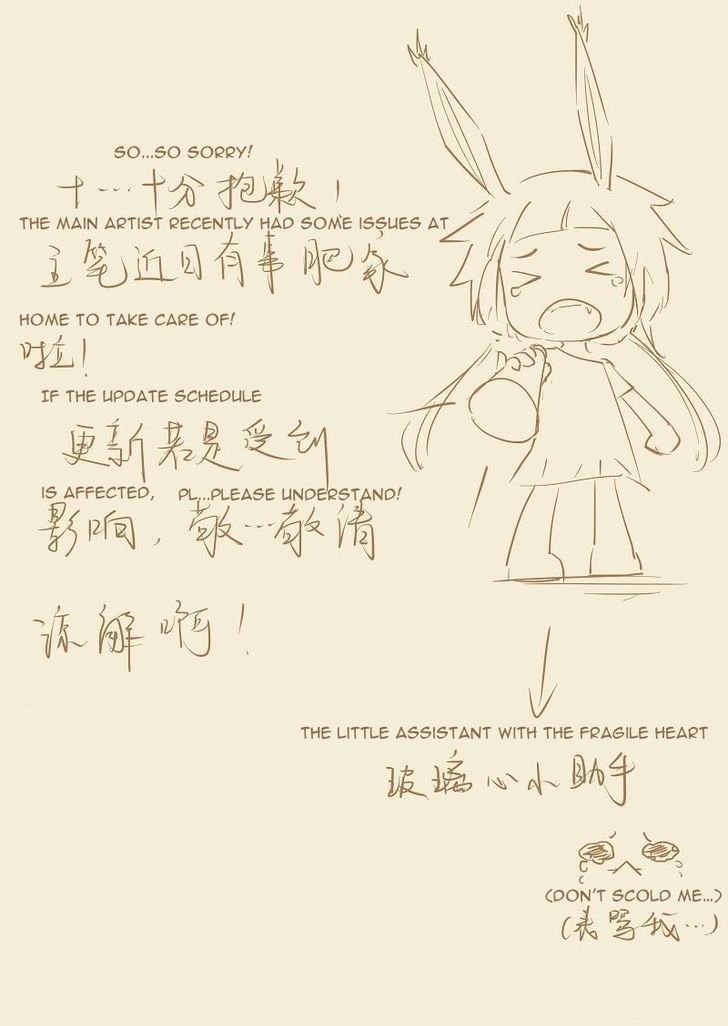 SO...SO SORRY!
十…十分抱歉!
THE MAIN ARTIST RECENTLY HAD SOME ISSUES AT
主笔近日有事肥家
HOME TO TAKE CARE OF!
啦!
IF THE UPDATE SCHEDULE
更新若是受到
IS AFFECTED, PL...PLEASE UNDERSTAND!
影响,敬…敬请
谅解啊!
THE LITTLE ASSISTANT WITH THE FRAGILE HEART
玻璃心小助手
(DON'T SCOLD ME...)
(表骂我…)